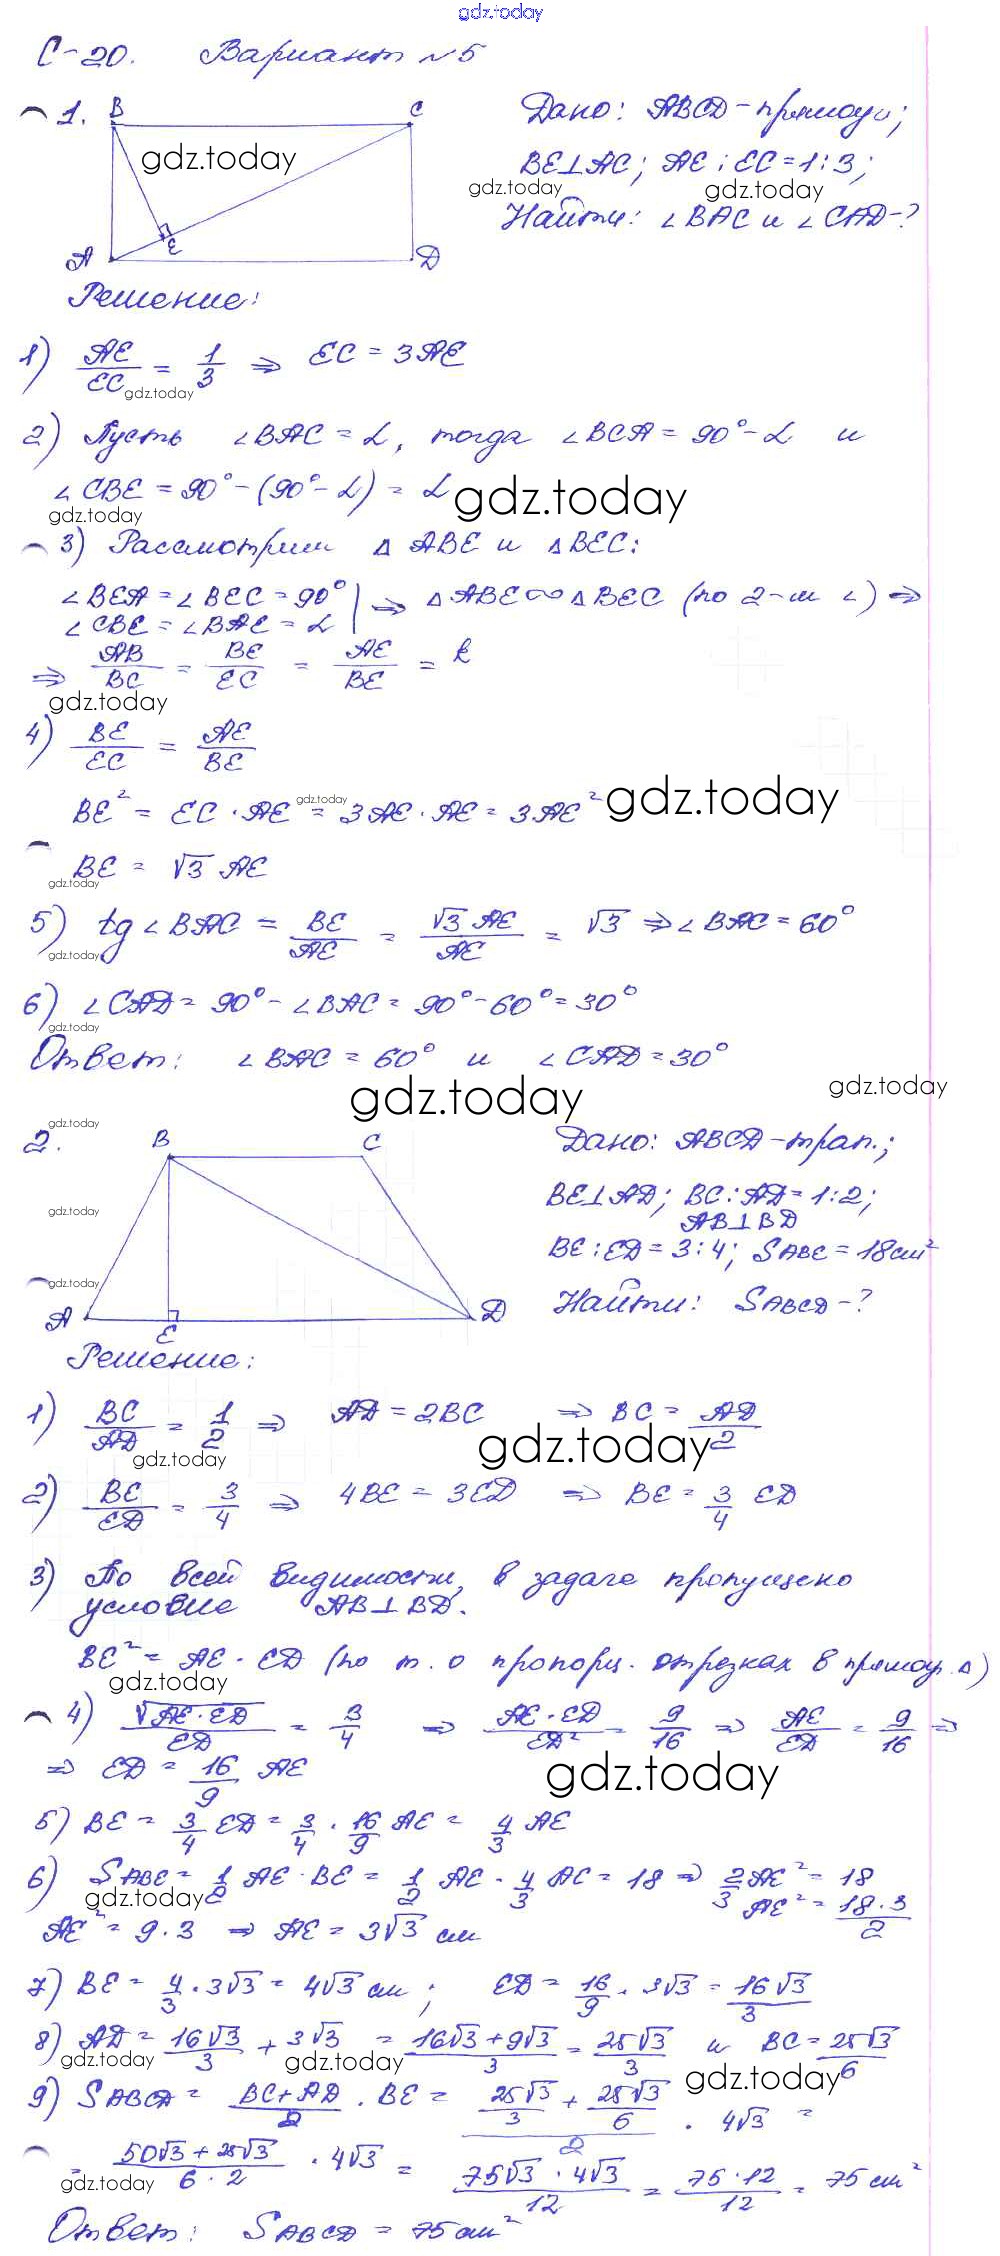 gdz.today
С-20. Вариант №5
1. B C Дано: ABCD - прямоуг.;
gdz.today
BE⊥AC; AE : EC = 1:3;
gdz.today gdz.today
Найти: ∠BAC и ∠CAD-?
A E D
Решение:
1) AE/EC = 1/3 ⇒ EC = 3AE
gdz.today
2) Пусть ∠BAC = α, тогда ∠BCA = 90° - α и
∠CBE = 90° - (90° - α) = α
gdz.today
gdz.today
3) Рассмотрим △ABE и △BEC:
∠BEA = ∠BEC = 90° | ⇒ △ABE ∾ △BEC (по 2-м ∠) ⇒
∠CBE = ∠BAE = α
⇒ AB/BC = BE/EC = AE/BE = k
gdz.today
4) BE/EC = AE/BE
BE² = EC · AE = 3AE · AE = 3AE²
gdz.today gdz.today
BE = √3 AE
gdz.today
5) tg∠BAC = BE/AE = √3 AE/AE = √3 ⇒ ∠BAC = 60°
gdz.today
6) ∠CAD = 90° - ∠BAC = 90° - 60° = 30°
gdz.today
Ответ: ∠BAC = 60° и ∠CAD = 30°
gdz.today gdz.today
gdz.today
2. B C Дано: ABCD - трап.;
BE⊥AD; BC : AD = 1:2;
gdz.today
AB⊥BD
BE : ED = 3:4; SABE = 18 см²
gdz.today
Найти: SABCD-?
A E D
Решение:
1) BC/AD = 1/2 ⇒ AD = 2BC ⇒ BC = AD/2
gdz.today gdz.today
2) BE/ED = 3/4 ⇒ 4BE = 3ED ⇒ BE = 3/4 ED
3) По всей видимости, в задаче пропущено
условие AB⊥BD.
BE² = AE · ED (по т. о пропорц. отрезках в прямоуг. △)
gdz.today
4) √AE · ED/ED = 3/4 ⇒ AE · ED/ED² = 9/16 ⇒ AE/ED = 9/16 ⇒
⇒ ED = 16/9 AE
gdz.today
5) BE = 3/4 ED = 3/4 · 16/9 AE = 4/3 AE
6) SABE = 1/2 AE · BE = 1/2 AE · 4/3 AE = 18 ⇒ 2/3 AE² = 18
gdz.today
AE² = 18·3/2
AE² = 9·3 ⇒ AE = 3√3 см
7) BE = 4/3 · 3√3 = 4√3 см; ED = 16/9 · 3√3 = 16√3/3
8) AD = 16√3/3 + 3√3 = 16√3+9√3/3 = 25√3/3 и BC = 25√3/6
gdz.today gdz.today gdz.today
9) SABCD = BC+AD/2 · BE = 25√3/3 + 25√3/6/2 · 4√3 =
= 50√3 + 25√3/6·2 · 4√3 = 75√3 · 4√3/12 = 75·12/12 = 75 см²
gdz.today
Ответ: SABCD = 75 см²